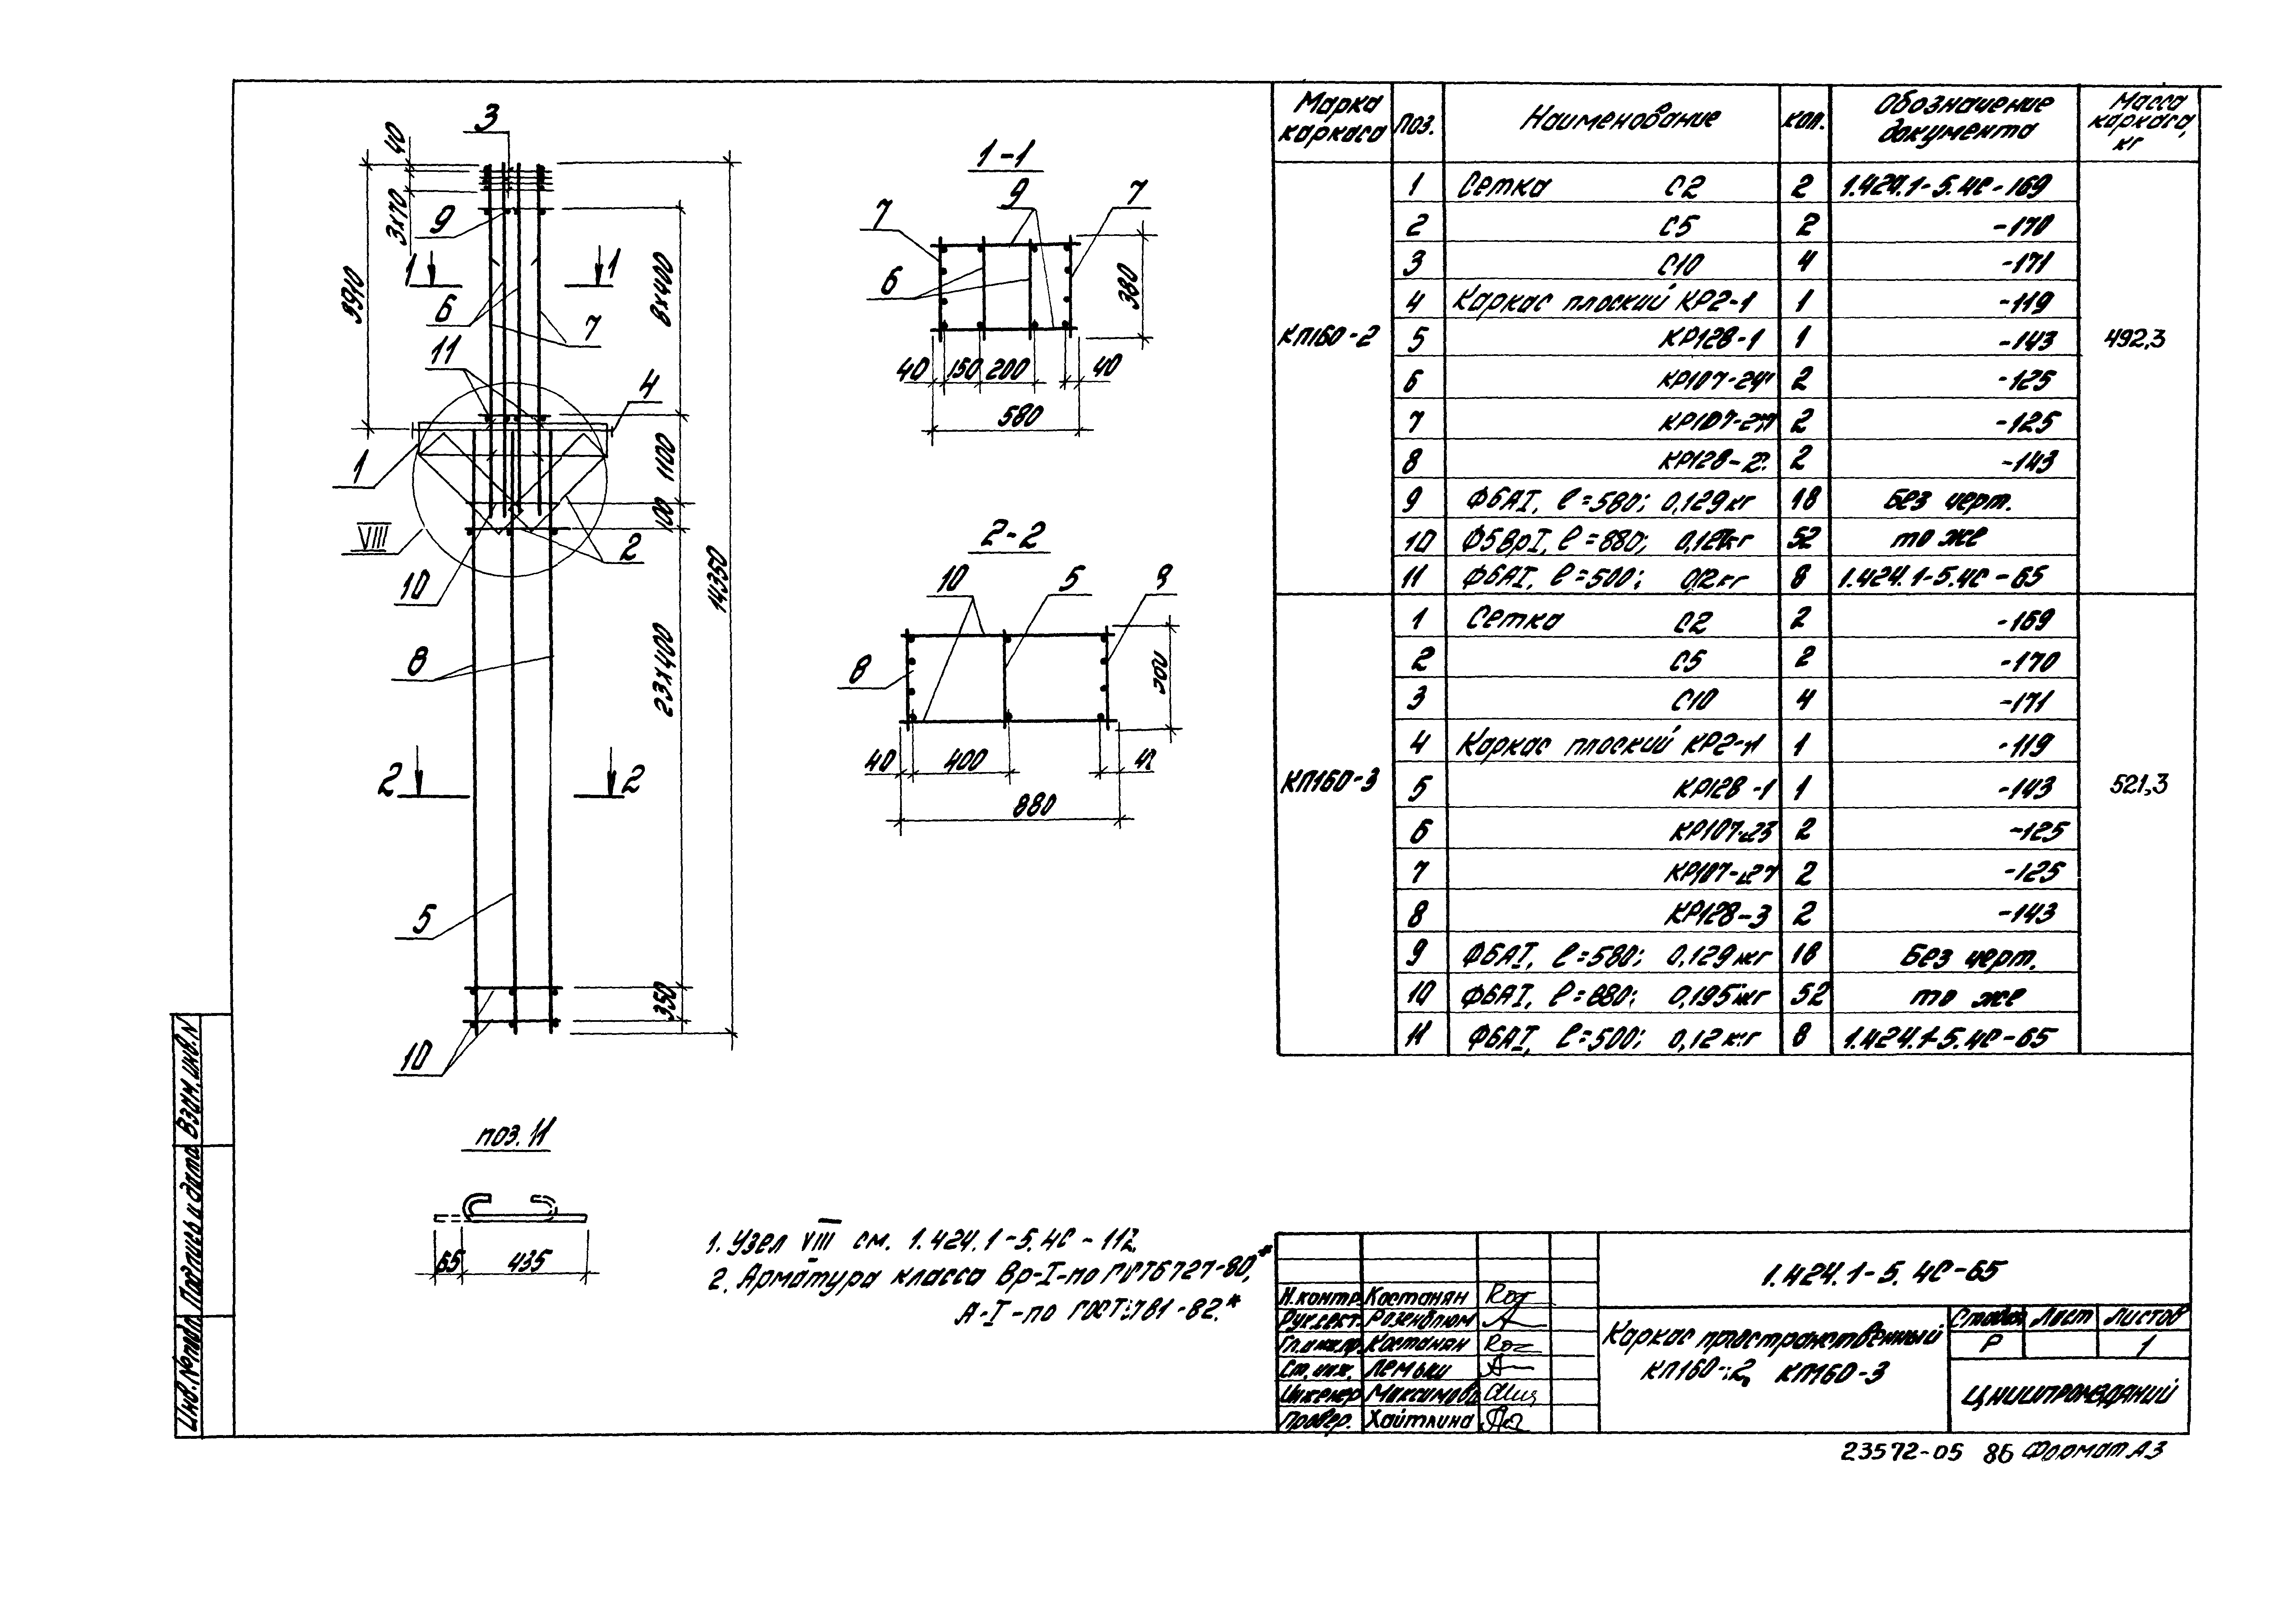 Марка каркаса | Поз. | Наименование | Кол. | Обозначение документа | Масса каркаса, кг
КП160-2 | 492,3
1 | Сетка С2 | 2 | 1.424.1-5.4С-169
2 | С5 | 2 | -170
3 | С10 | 4 | -171
4 | Каркас плоский КР2-1 | 1 | -119
5 | КР128-1 | 1 | -143
6 | 2 | -125
7 | 2 | -125
8 | КР128-2 | 2 | -143
9 | Ф6АI, ℓ=580; 0,129кг | 18 | Без черт.
10 | Ф5ВрI, ℓ=880; | 52 | то же
11 | Ф6АI, ℓ=500; 0,12кг | 8 | 1.424.1-5.4С-65
КП160-3 | 521,3
1 | Сетка С2 | 2 | -169
2 | С5 | 2 | -170
3 | С10 | 4 | -171
4 | Каркас плоский | 1 | -119
5 | КР128-1 | 1 | -143
6 | КР107-23 | 2 | -125
7 | КР107-27 | 2 | -125
8 | КР128-3 | 2 | -143
9 | Ф6АI, ℓ=580; 0,129кг | 18 | Без черт.
10 | Ф6АI, ℓ=880; 0,195кг | 52 | то же
11 | Ф6АI, ℓ=500; 0,12кг | 8 | 1.424.1-5.4С-65
3
40
3х70
9
3910
1
1
6
7
8х400
11
4
1
1100
100
VIII
2
10
14350
8
23х400
2
2
5
350
10
1-1
7
9
7
6
380
40 150 200 40
580
2-2
10
5
8
8
40 400
880
поз. 11
65 435
1. Узел VIII см. 1.424.1-5.4С-112.
2. Арматура класса Вр-I-по ГОСТ6727-80,*
А-I-по ГОСТ5781-82.*
1.424.1-5.4С-65
Каркас пространственный
КП160-2, КП160-3
Стадия Лист Листов
Р 1
ЦНИИпромзданий
Н.контр. Костанян
Рук.сект. Розенблюм
Гл.инж.пр. Костанян
Ст.инж.
Инженер Максимова
Провер. Хайтлина
Взам.инв.N
Подпись и дата
Инв.№подл.
23572-05 86 Формат А3